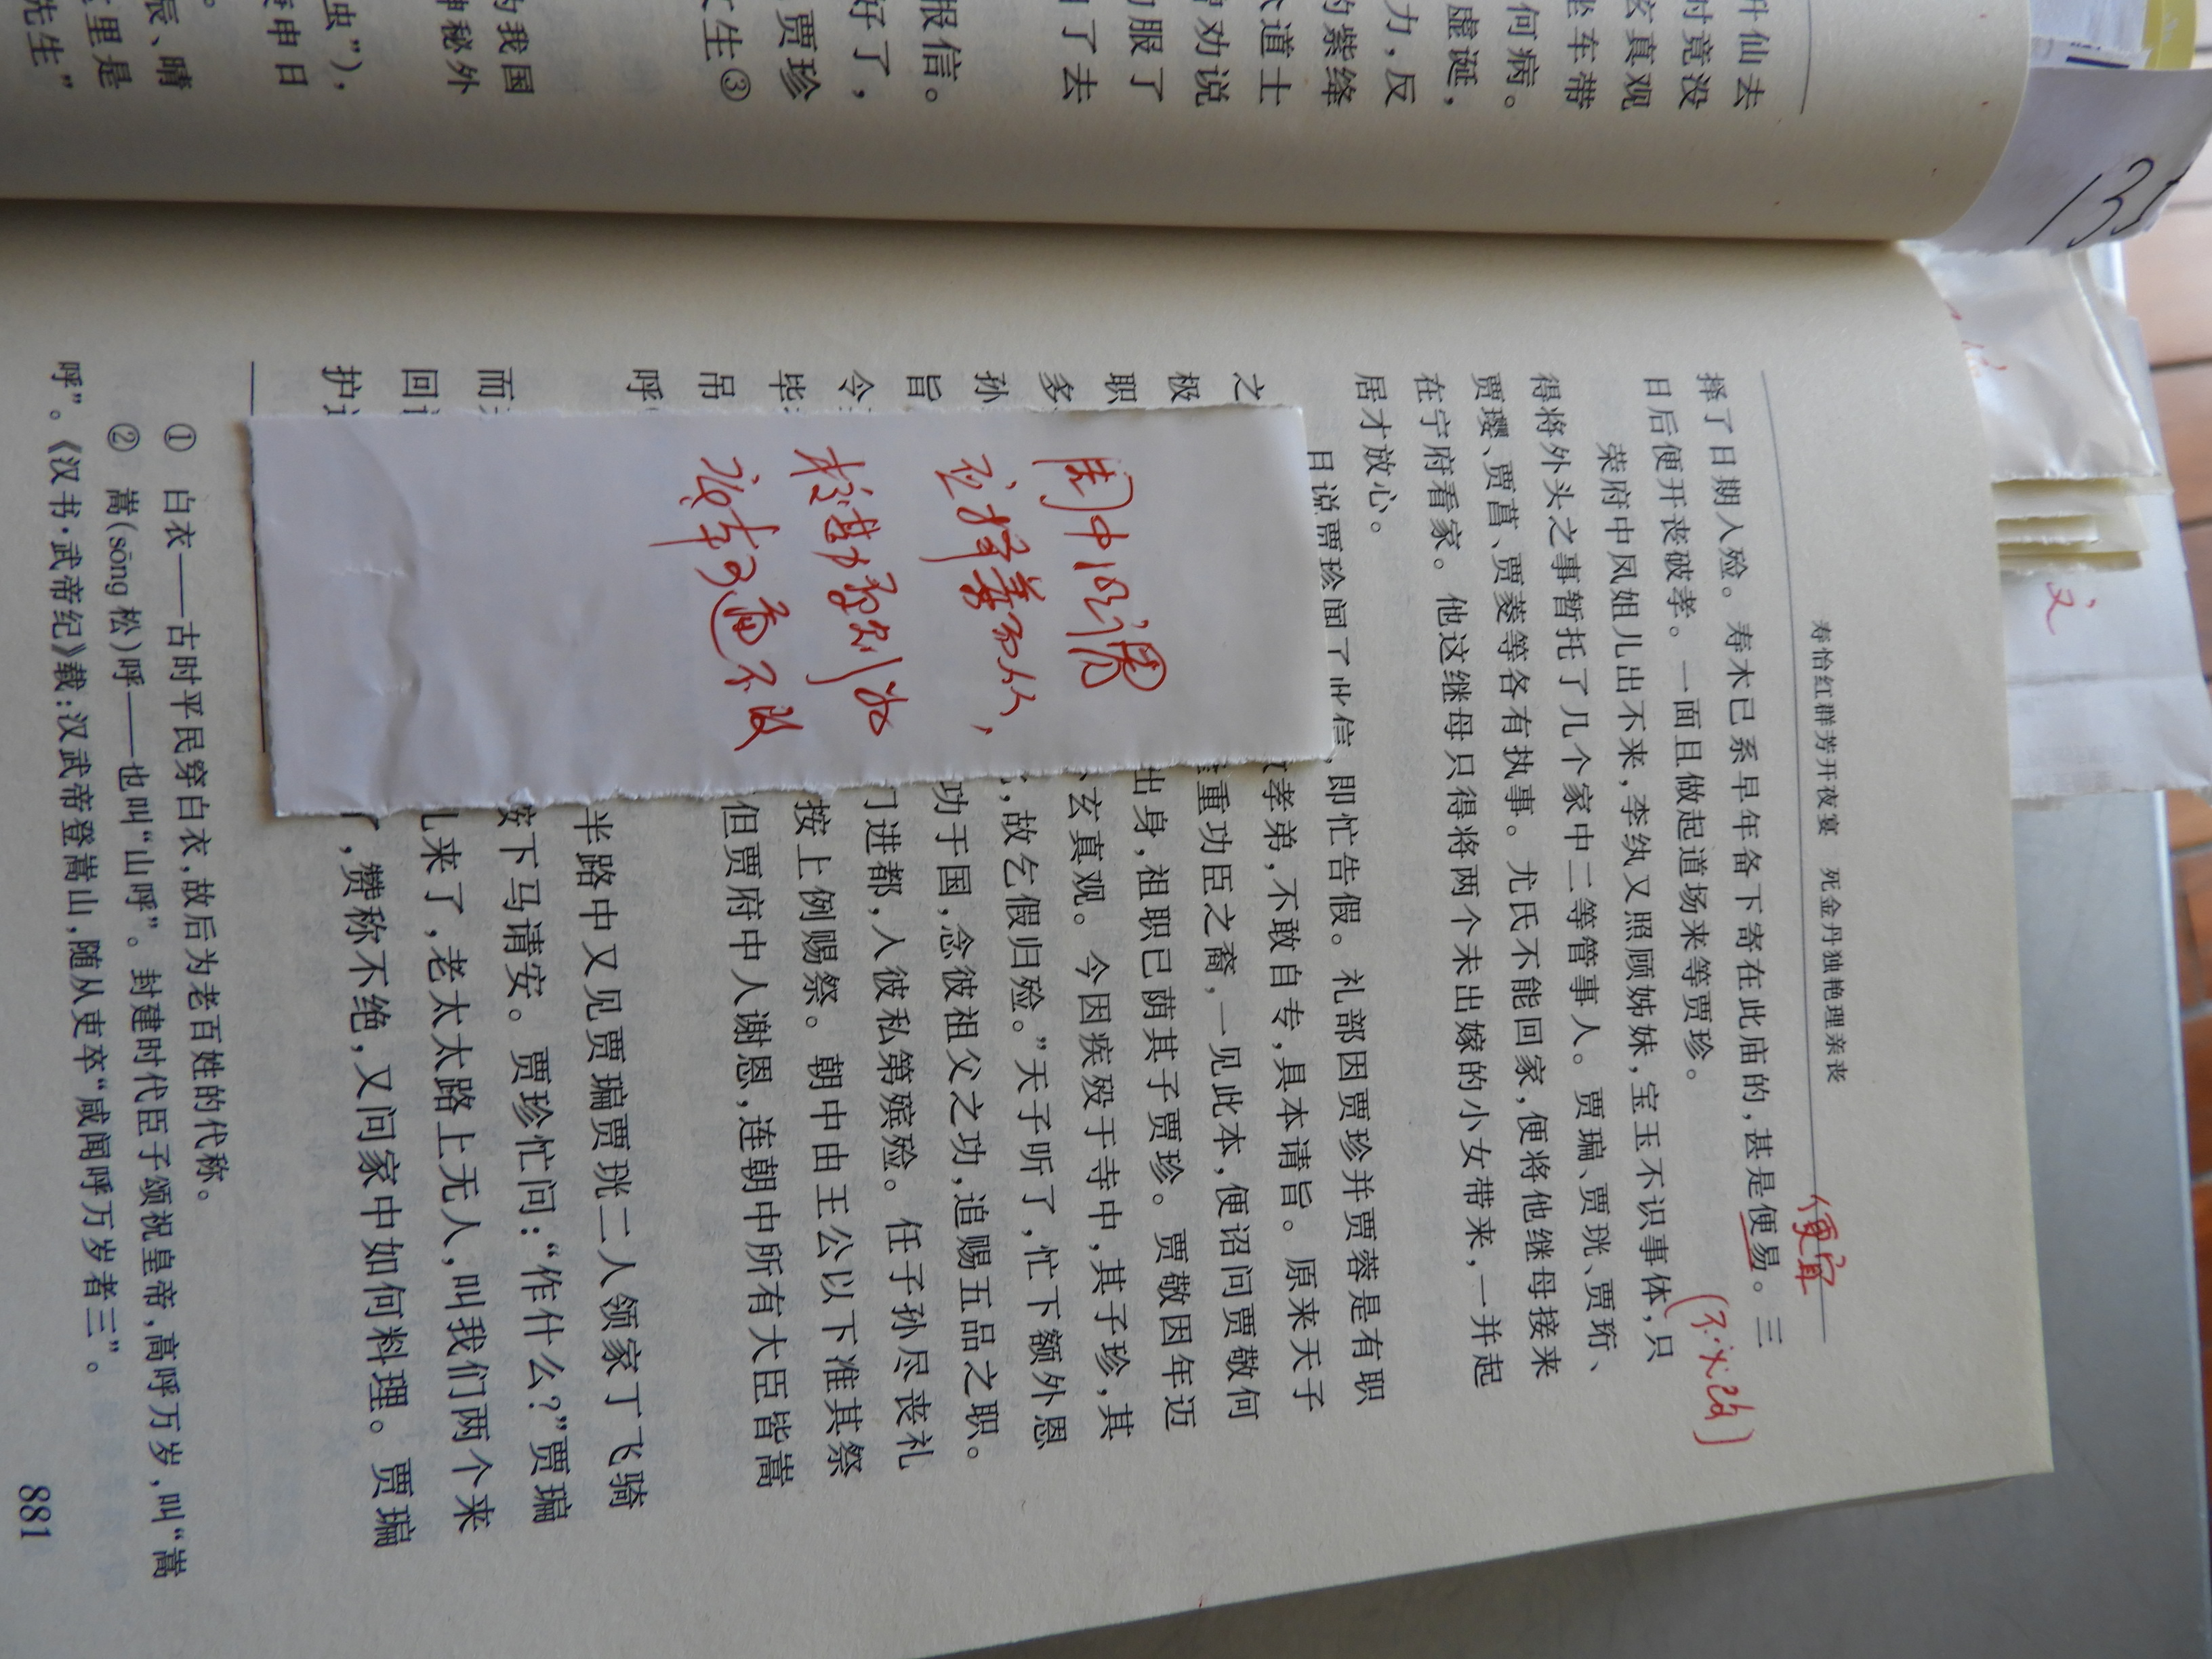 升仙去
时竟没
玄真观
坐车带
何病。
虚诞，
力，反
的紫绛
道士
劝说
服了
了去
服信。
好了，
贾珍
生③
我国
神秘外
虫”），
申日
辰、晴
里是
先生”
寿怡红群芳开夜宴 死金丹独艳理亲丧
便宜
择了日期入殓。寿木已系早年备下寄在此庙的，甚是便易。三
日后便开丧破孝。一面且做起道场来等贾珍。
(不必改)
荣府中凤姐儿出不来，李纨又照顾姊妹，宝玉不识事体，只
得将外头之事暂托了几个家中二等管事人。贾㻞、贾珖、贾珩、
贾璎、贾菖、贾菱等各有执事。尤氏不能回家，便将他继母接来
在宁府看家。他这继母只得将两个未出嫁的小女带来，一并起
居才放心。
且说贾珍闻了此信，即忙告假。礼部因贾珍并贾蓉是有职
之
孝弟，不敢自专，具本请旨。原来天子
极
重功臣之裔，一见此本，便诏问贾敬何
职
出身，祖职已荫其子贾珍。贾敬因年迈
多
玄真观。今因疾殁于寺中，其子珍，其
孙
，故乞假归殓。”天子听了，忙下额外恩
旨
功于国，念彼祖父之功，追赐五品之职。
令
门进都，入彼私第殡殓。任子孙尽丧礼
毕
按上例赐祭。朝中由王公以下准其祭
吊
但贾府中人谢恩，连朝中所有大臣皆嵩
呼
半路中又见贾㻞贾珖二人领家丁飞骑
而
按下马请安。贾珍忙问：“作什么？”贾㻞
回
来了，老太太路上无人，叫我们两个来
护
，赞称不绝，又问家中如何料理。贾㻞
① 白衣——古时平民穿白衣，故后为老百姓的代称。
② 嵩(sōng 松)呼——也叫“山呼”。封建时代臣子颂祝皇帝，高呼万岁，叫“嵩
呼”。《汉书·武帝纪》载：汉武帝登嵩山，随从吏卒“咸闻呼万岁者三”。
881